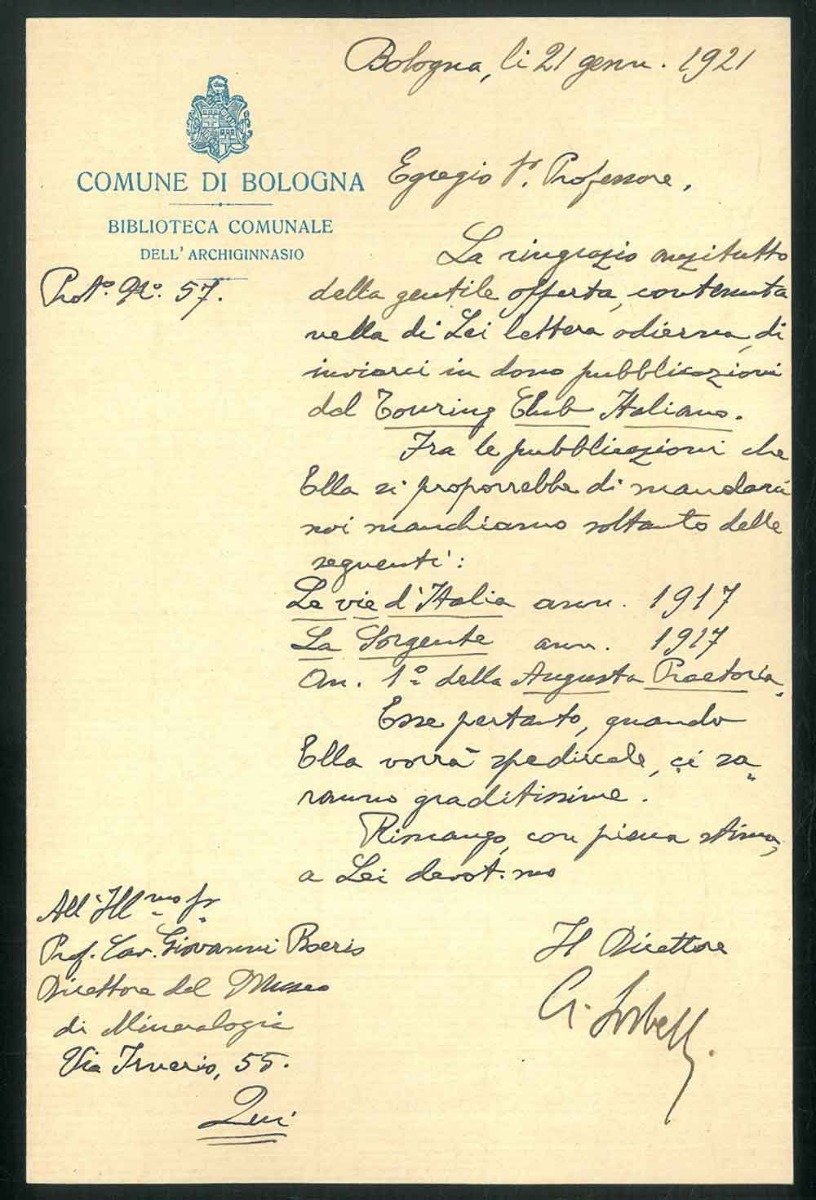 Bologna, li 21 genn. 1921
COMUNE DI BOLOGNA
BIBLIOTECA COMUNALE
DELL' ARCHIGINNASIO
Prot.º Nº. 57.
Egregio Sr. Professore,
La ringrazio anzitutto
della gentile offerta, contenuta
nella di Lei lettera odierna, di
inviarci in dono pubblicazioni
del Touring Club Italiano.
Fra le pubblicazioni che
Ella si proporrebbe di mandarci
noi manchiamo soltanto delle
seguenti:
Le vie d'Italia ann. 1917
La Sorgente ann. 1917
An. 1º della Augusta Praetoria.
Esse pertanto, quando
Ella vorrà spedircele, ci sa„
ranno graditissime.
Rimango, con piena stima,
a Lei devot.mo
Il Direttore
A. Sorbelli.
All'Ill.mo Sr.
Prof. Cav. Giovanni Boeris
Direttore del Museo
di Mineralogia
Via Irnerio, 55.
Qui